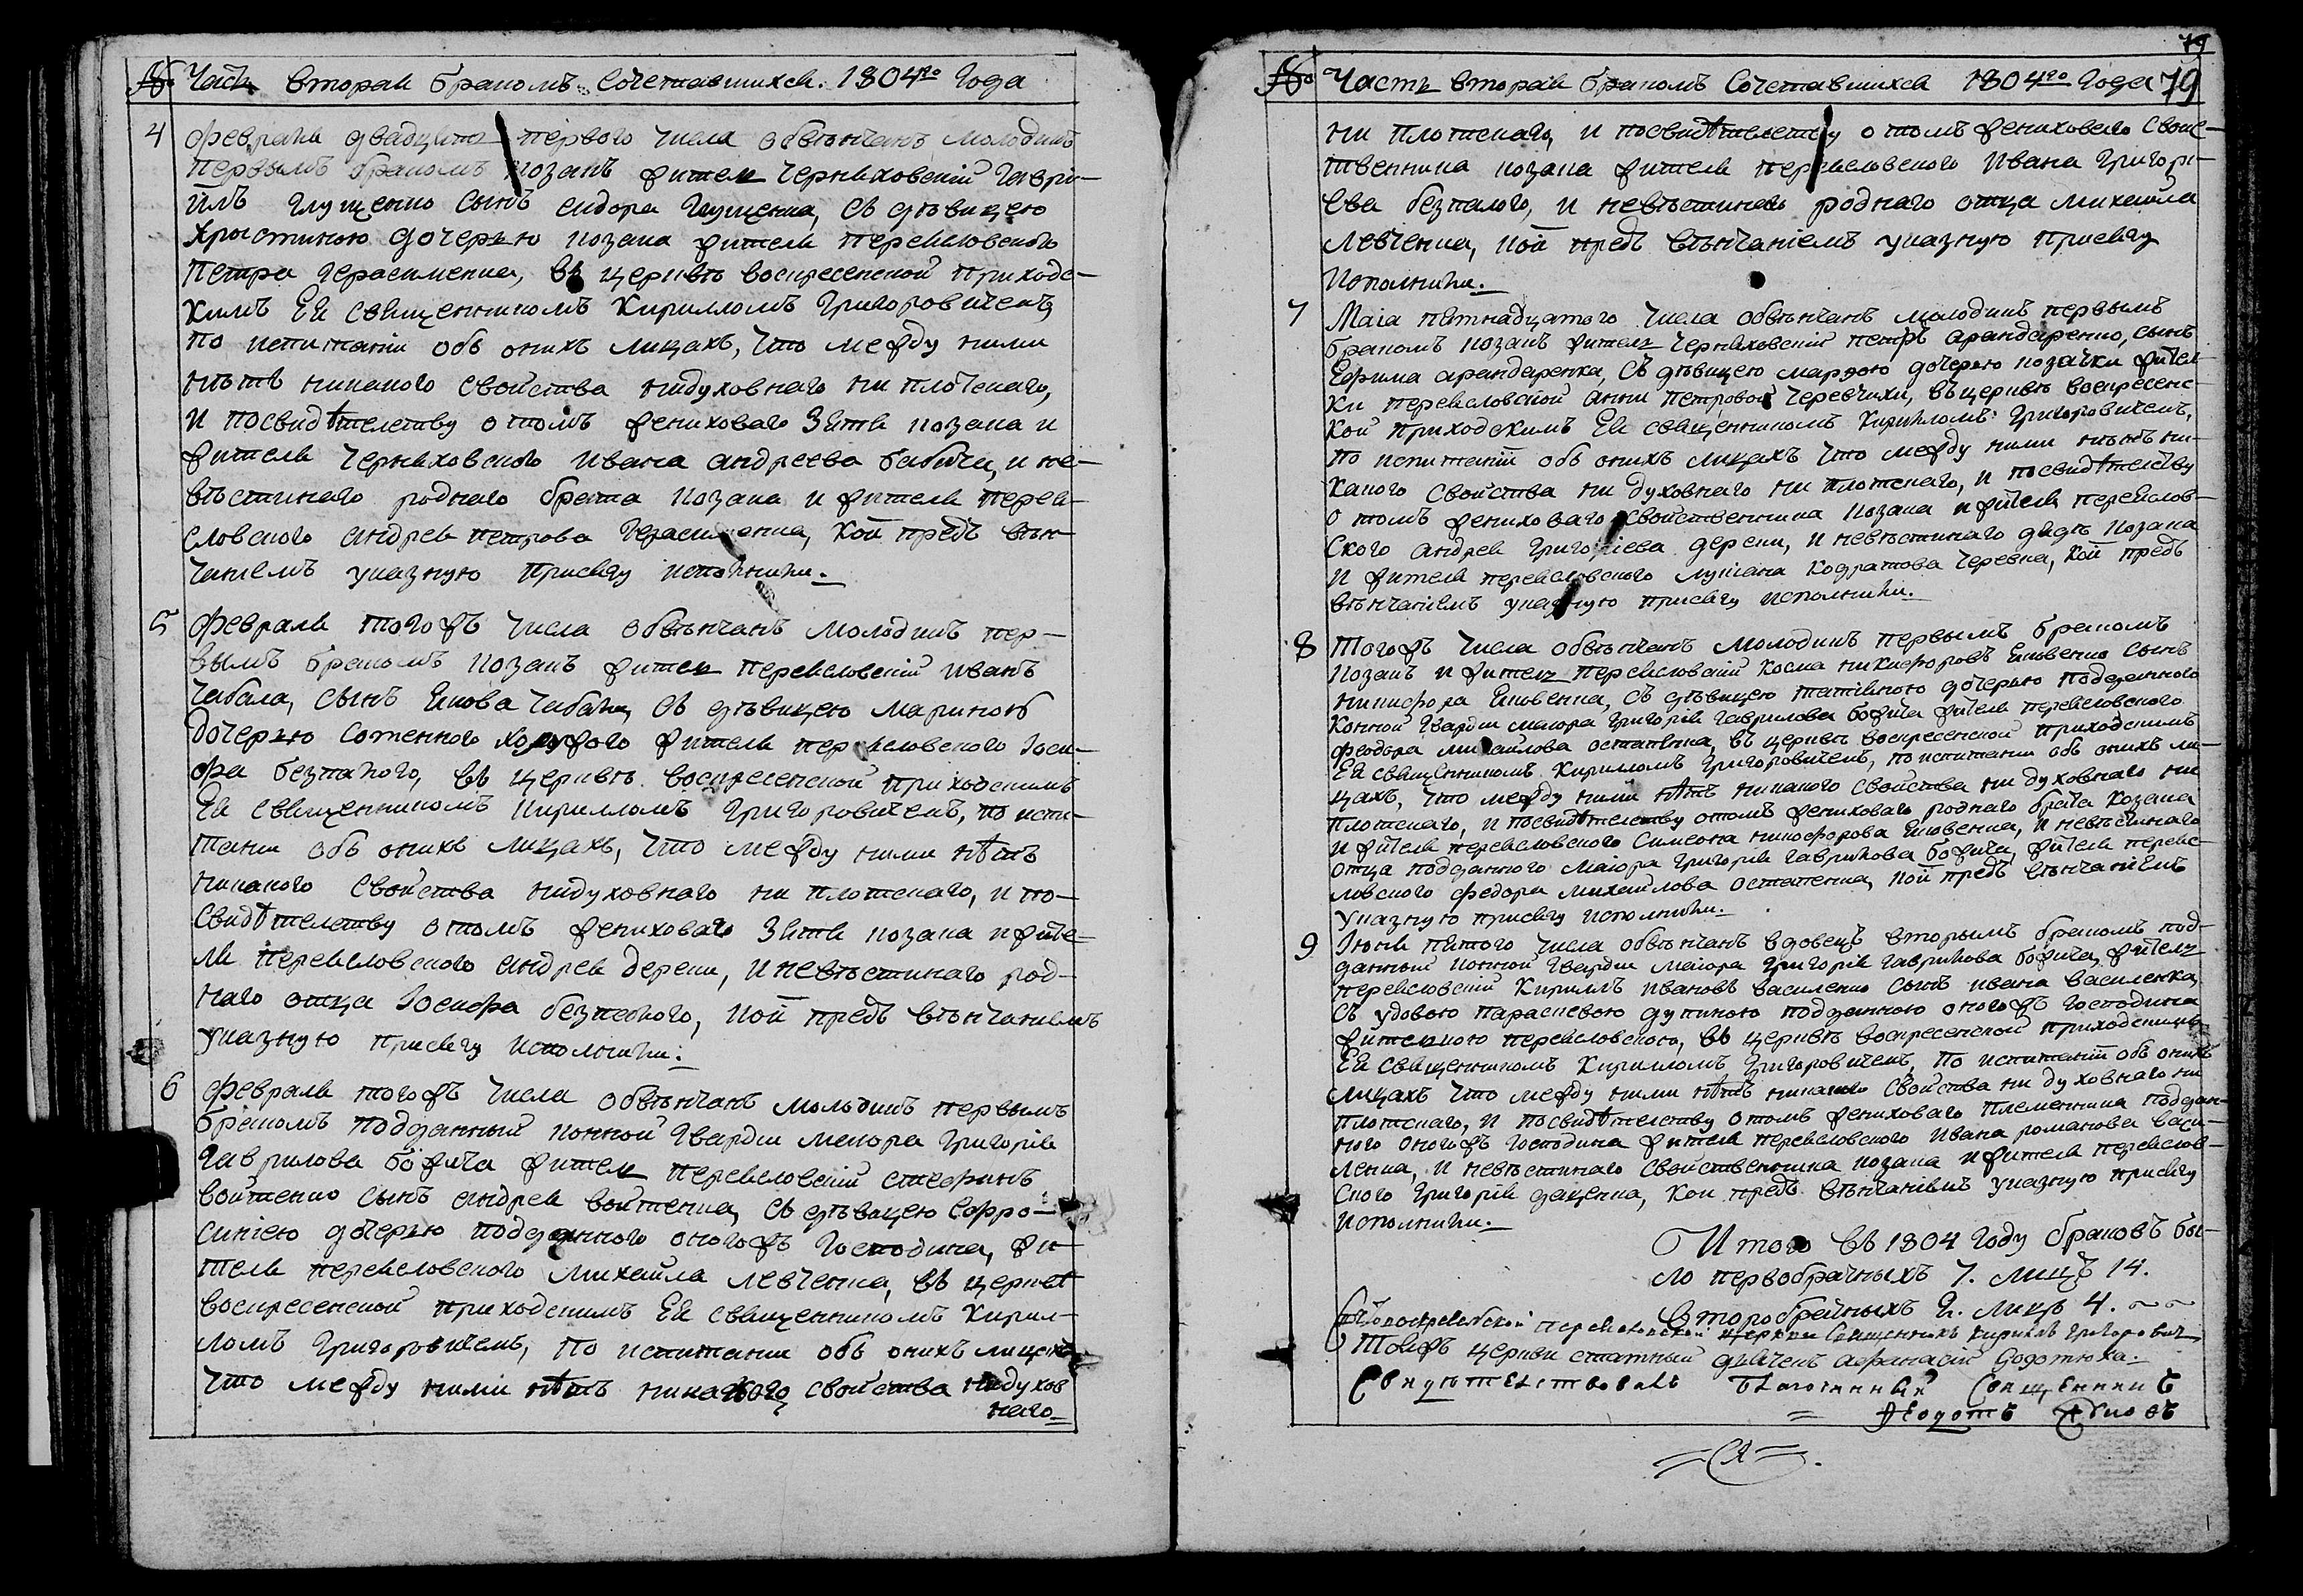 № Часть вторая бракомъ Сочетавшихся. 1804го Года
4 февраля двадцать первого числа обвѣнчанъ молодикъ
первымъ бракомъ козакъ житель Черняховскій Гаври-
илъ Глущенко сынъ Сидора Глущенка, съ дѣвицею
Христиною дочерью козака жителя переясловского
Петра Герасименка, въ церквѣ воскресенской приходс-
кимъ Ея священникомъ Кирилломъ Григоровичемъ,
по испитаніи объ онихъ лицахъ, что между ними
нѣтъ никакого свойства нидуховнаго ни плотскаго,
и посвидѣтелству отомъ женихового Зятя козака и
жителя Черняховского Ивана Андреева бабича, и не-
вѣстинаго родного брата козака и жителя перея-
словского Андрея петрова Герасименка, кои предъ вѣн-
чаніемъ указную присягу исполнили.
5 февраля тогожъ числа обвѣнчанъ молодикъ пер-
вымъ бракомъ козакъ житель переясловскій Иванъ
Чабала, сынъ Якова Чабали, съ дѣвицею Мариною
дочерью Сотенного житeля переясловского Іоси-
фа безпалого, въ церквѣ воскресенской приходскимъ
Ея священникомъ Кирилломъ Григоровичемъ, по испи-
таніи объ онихъ лицахъ, что между ними нѣтъ
никакого свойства нидуховнаго ни плотскаго, и по-
свидѣтелству отомъ женихового Зятя козака и жите-
ля переясловского Андрея дереки, и невѣстинаго род-
наго отца Іосифа безпалого, кои предъ вѣнчаніемъ
указную присягу исполнили.
6 февраля тогожъ числа обвѣнчанъ молодикъ первымъ
бракомъ подданный конной Гвардіи маіора Григорія
Гаврилова божича житель переясловскій стефанъ
войтенко сынъ Андрея войтенка, съ дѣвицею Евфро-
синіею дочерью подданного оногожъ Господина, жи-
теля переясловского Михайла Левченка, въ церквѣ
воскресенской приходскимъ Ея священникомъ Кирил-
ломъ Григоровичемъ, по испитаніи объ онихъ лицахъ
что между ними нѣтъ никакого свойства нидухов
наго
79
№ Часть вторая бракомъ Сочетавшихся 1804го Года 79
ни плотскаго, и посвидѣтелству отомъ женихового Свойс-
твенника козака жителя переясловского Ивана Григорі-
ева безпалого, и невѣстинаго роднаго отца Михайла
Левченка, кои предъ вѣнчаніемъ указную присягу
исполнили.
7 Маія пятнадцатого числа обвѣнчанъ молодикъ первымъ
бракомъ козакъ житель Черняховскій петръ Арандаренко, сынъ
Ефима Арандаренка, съ дѣвицею Марфою дочерью козачки жител-
ки переясловской Анни Петровой Черевчихи, въ церквѣ воскресенс-
кой приходскимъ Ея священникомъ Кирилломъ Григоровичемъ,
по испитаніи объ онихъ лицахъ что между ними нѣтъ ни-
какого свойства ни духовнаго ни плотскаго, и посвидѣтелству
о томъ женихового свойственника козака и жителя переяслов-
ского Андрея Григоріева дереки, и невѣстинаго дядѣ козака
и жителя переясловского Лукіана Кодратова Черевка, кои предъ
вѣнчаніемъ указную присягу исполнили.
8 Тогожъ числа обвѣнчанъ молодикъ первымъ бракомъ
козакъ и житель переясловскій Косма никифоровъ Яковенко сынъ
никифора Яковенка, съ дѣвицею татіяною дочерью подданного
конной Гвардіи маіора Григорія Гаврилова божича жителя переясловского
Федора михайлова остапенка, въ церквѣ воскресенской приходскимъ
Ея священникомъ Кирилломъ Григоровичемъ, по испитаніи объ онихъ ли-
цахъ, что между ними нѣтъ никакого свойства ни духовнаго ни
плотскаго, и посвидѣтелству отомъ женихового роднаго брата козака
и жителя переясловского Симеона никифорова Яковенка, и невѣстинаго
отца подданного маіора Григорія Гаврилова божича, жителя переяс-
ловского Федора михайлова остапенка, кои предъ вѣнчаніемъ
указную присягу исполнили.
9 Іюня пятого числа обвѣнчанъ вдовецъ вторымъ бракомъ под-
данный конной Гвардіи маіора Григорія Гаврилова божича, житель
переясловскій Кириллъ Ивановъ василенко сынъ ивана василенка,
съ удовою параскевою дупиною подданною оногожъ Господина
жителкою переясловскою, въ церквѣ воскресенской приходскимъ
Ея священникомъ Кирилломъ Григоровичемъ, по испитаніи объ онихъ
лицахъ что между ними нѣтъ никакого свойства ни духовнаго ни
плотскаго, и посвидѣтелству отомъ женихового племенника поддан-
ного оногожъ Господина жителя переясловского Ивана романова васи-
ленка, и невѣстинаго свойственника козака и жителя переяслов-
ского Григорія даценка, кои предъ вѣнчаніемъ указную присягу
исполнили.
Итого въ 1804 году браковъ бы-
ло первобрачныхъ 7. лицъ 14.
Второбрачныхъ 2. лицъ 4.
церкви Священникъ Кирилъ Григорович
Тояжъ церкви статный дьячекъ Афанасій
Свидѣтелствовалъ благочинный Священникъ
Федотъ